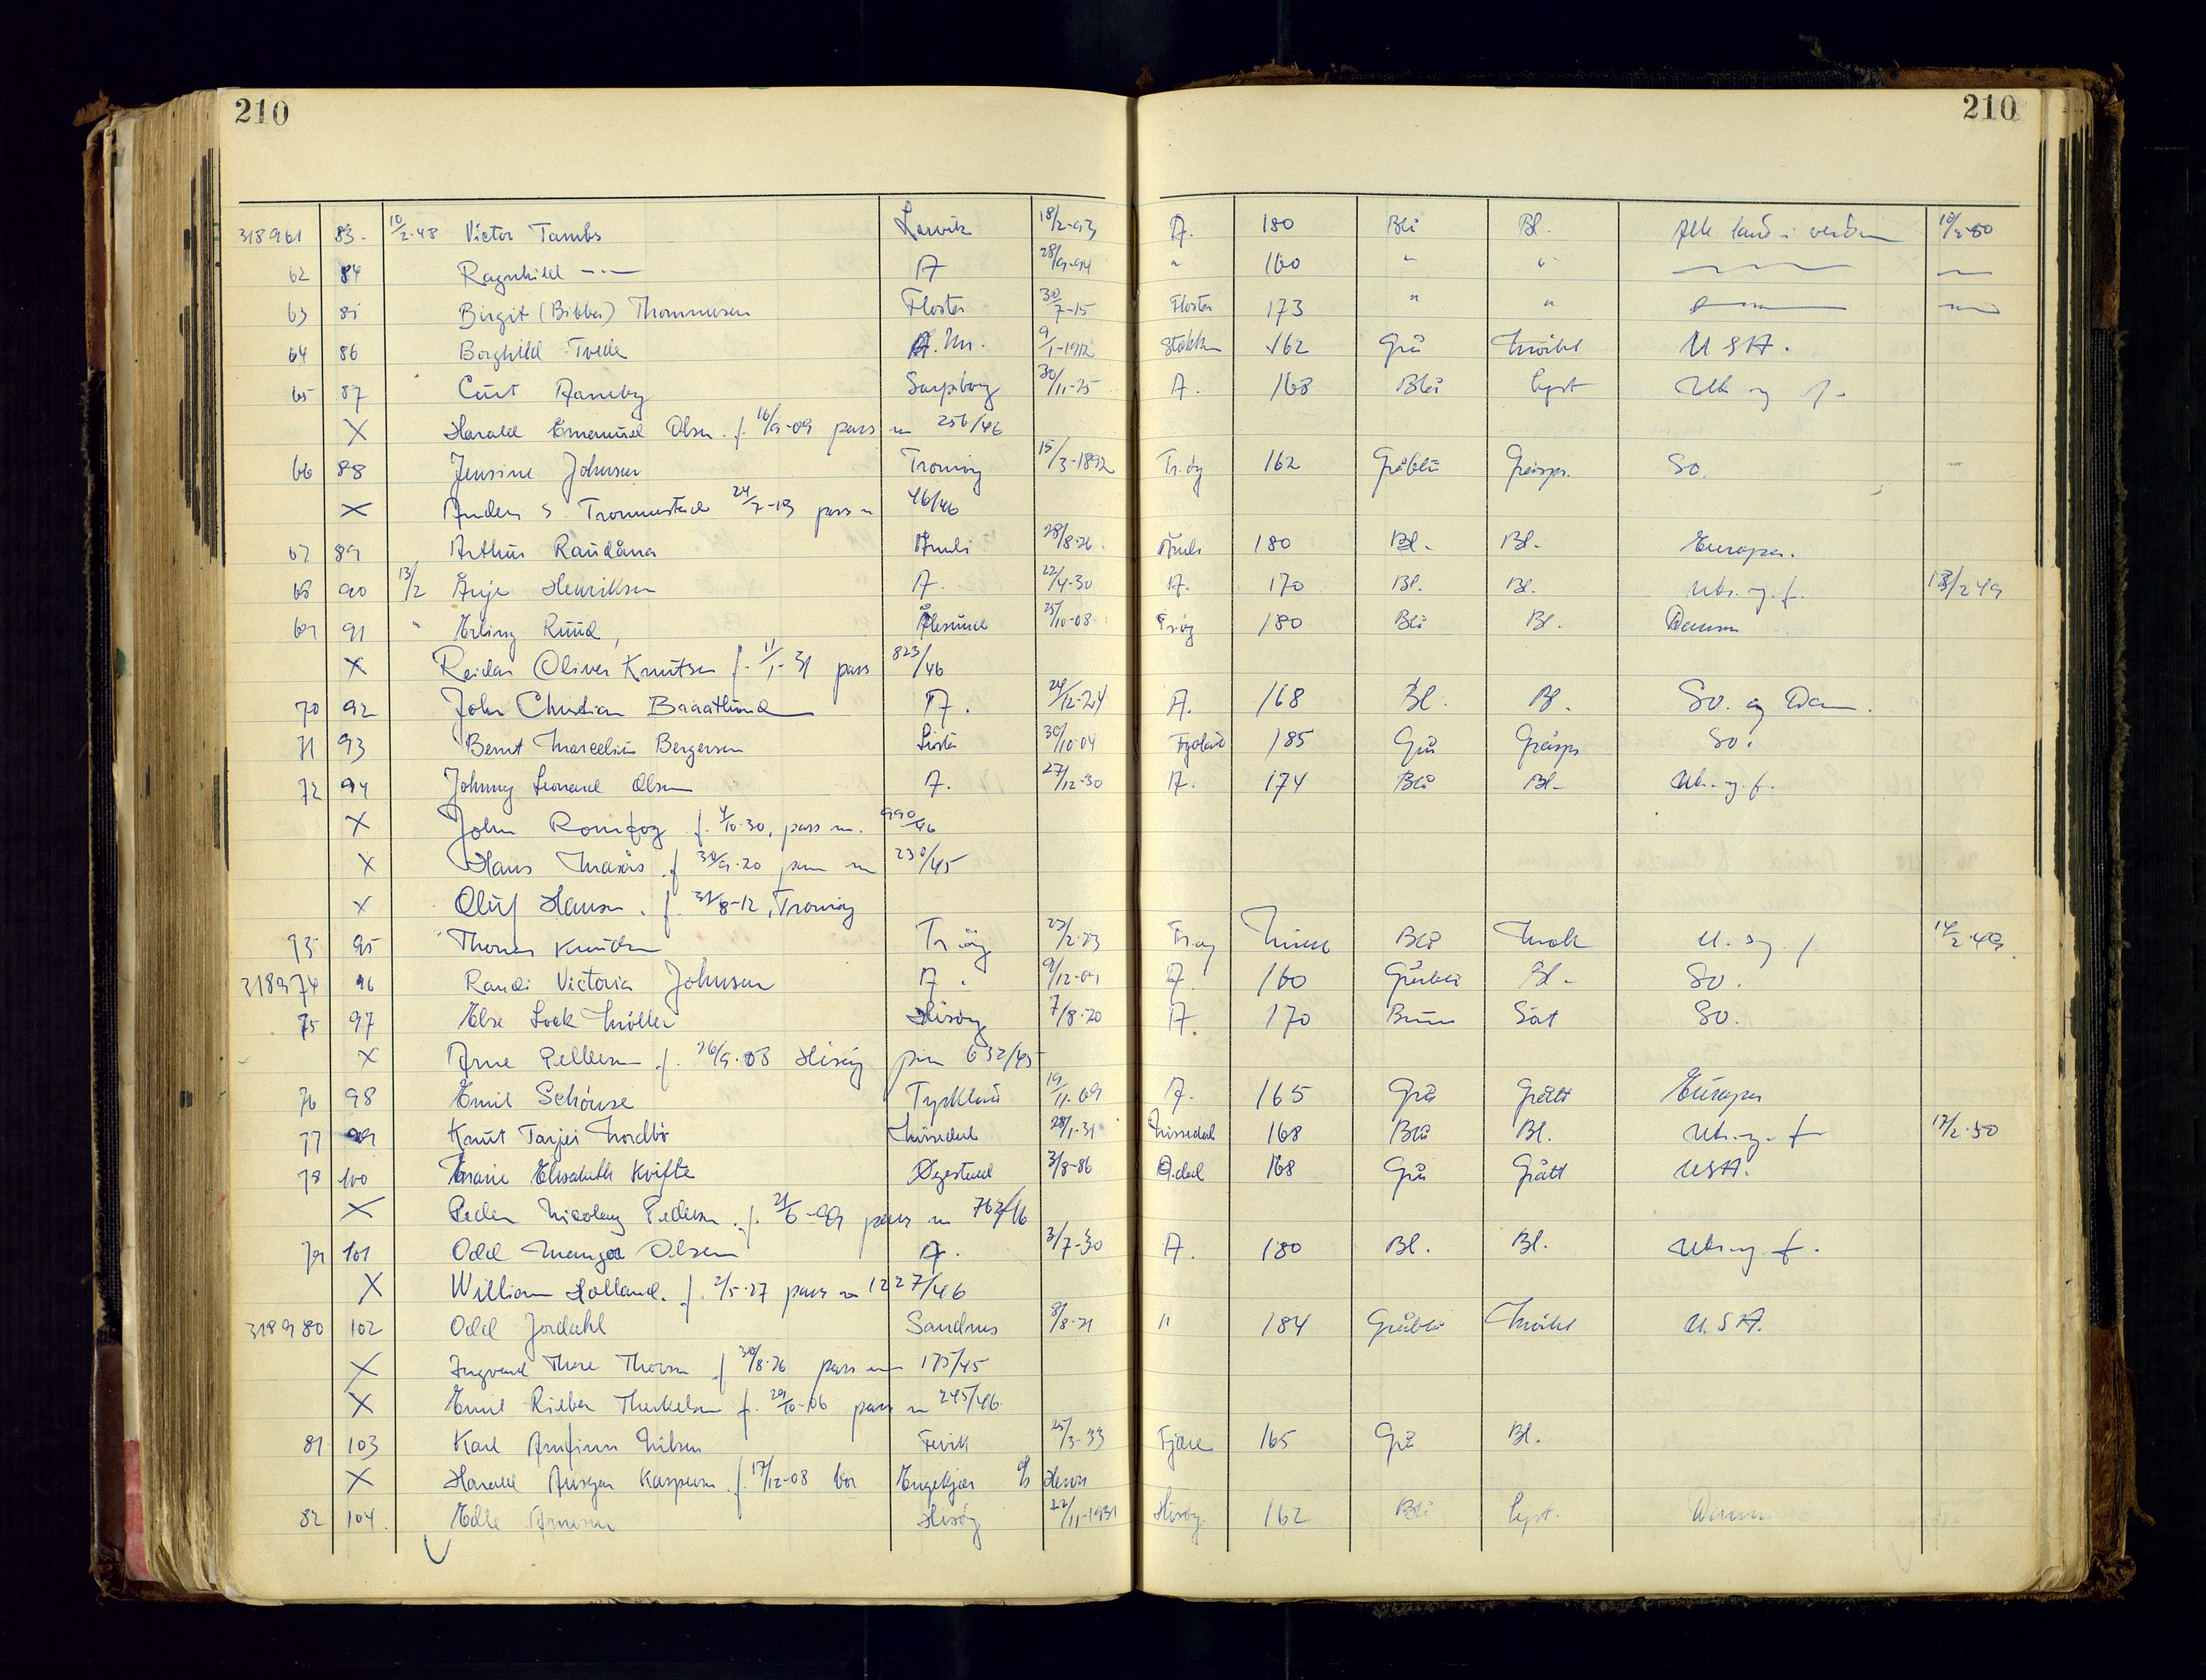 210 210
318961 83 10/2-48 Victor Tambs Larvik 18/2-93 A. 180 Blå Bl. Alle land i verden 10/2-50
62 84 Ragnhild —"— A 28/9-94 " 160 " "
63 85 Birgit (Bibber) Thommesen Flosta 30/7-15 Flosta 173 " "
64 86 Borghild Tvede 9/1-1912 Stokken 162 Grå Mörkt USA.
65 87 Curt Ranneby Sarpsborg 30/11-25 A. 168 Blå lyst Utl. og f.
X Harald Emanuel Olsen. f. 16/9-09 pass nr 256/46
66 88 Jensine Johnsen Tromöy 15/3-1892 Tr.öy 162 Gråblå Gråspr. So.
X Anders S. Tronnestad 24/7-13 pass nr 46/46
67 89 Arthur Raudåna Åmli 28/8-26 Åmli 180 Bl. Bl. Europa.
68 90 13/2 Anje Henriksen A. 22/4-30 A. 170 Bl. Bl. Utr. og f. 13/2 49
69 91 " Erling Ruud, Ålesund 25/10-08 Tr.öy 180 Blå Bl. Danm
X Reidar Oliver Knutsen f. 11/1-31 pass 823/46
70 92 John Christian Braatlund A. 24/12-24 A. 168 Bl. Bl. So. og Dan.
71 93 Bernt Marcelius Bergersen Lista 30/10-04 Froland 185 Grå Gråspr So.
72 94 Johnny Leonard Olsen A. 27/12-30 A. 174 Blå Bl. Utr. og f.
X John Romfog f. 4/10-30, pass nr. 990/46
X Hans f. 30/9-20 pass nr 230/45
X Oluf Hansen. f. 31/8-12, Tromöy
73 95 Thomas Knudsen Tr öy 23/2-23 Tr.öy Blå Mörk U. og f. 14/2-49
318974 96 Randi Victoria Johnsen A. 9/12-09 A. 160 Gråblå Bl. So.
75 97 Else Lock Möller Hisöy 7/8-20 A 170 Brun Sort So.
X Arne Pettersen f. 26/9-03 Hisöy pass 632/45
76 98 Emil Schönse Tyskland 19/11-09 A. 165 Grå Grått Europa
77 99 Knut Tarjei Nordbö Nissedal 28/1-31 Nissedal 168 Blå Bl. Utr. og f 17/2-50
78 100 Marie Elisabeth Kvifte Øyestad 3/8-86 168 Grå Grått USA.
X Peder Nicolay Pedersen. f. 21/6-99 pass nr 762/46
79 101 Odd Magne Olsen A. 3/7-30 A. 180 Bl. Bl. Utr og f.
X William Holland. f. 2/5-27 pass nr 1227/46
318980 102 Odd Jordahl Sandnes 8/8-21 " 184 Gråblå Mörkt U.S.A.
X Ingvard Thore Thorsen f 30/8-26 pass nr 175/45
X Emil Rieber Therkelsen f. 29/10-06 pass nr 245/46
81 103 Karl Arnfinn Nilsen Fevik 25/3-33 Fjære 165 Grå Bl.
X Harald Ansgar Kaspersen f. 17/12-08 bor Engekjær
82 104. Edle Arnesen Hisöy 22/11-1931 Hisöy 162 Blå lyst. Danm